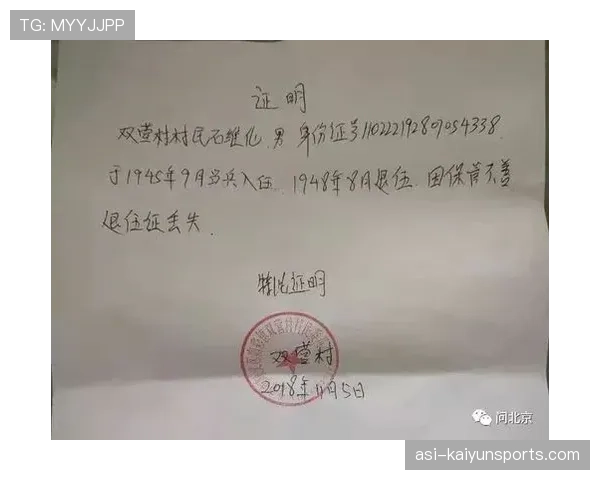 TG: MYYJJPP
证明
双营村村民石维化 男 身份证号110222192809054338
于1945年9月当兵入伍 1948年8月退伍 因保管不善
退伍证丢失.
特此证明
双营村
2018年11月5日
问北京
asi-kaiyunsports.com